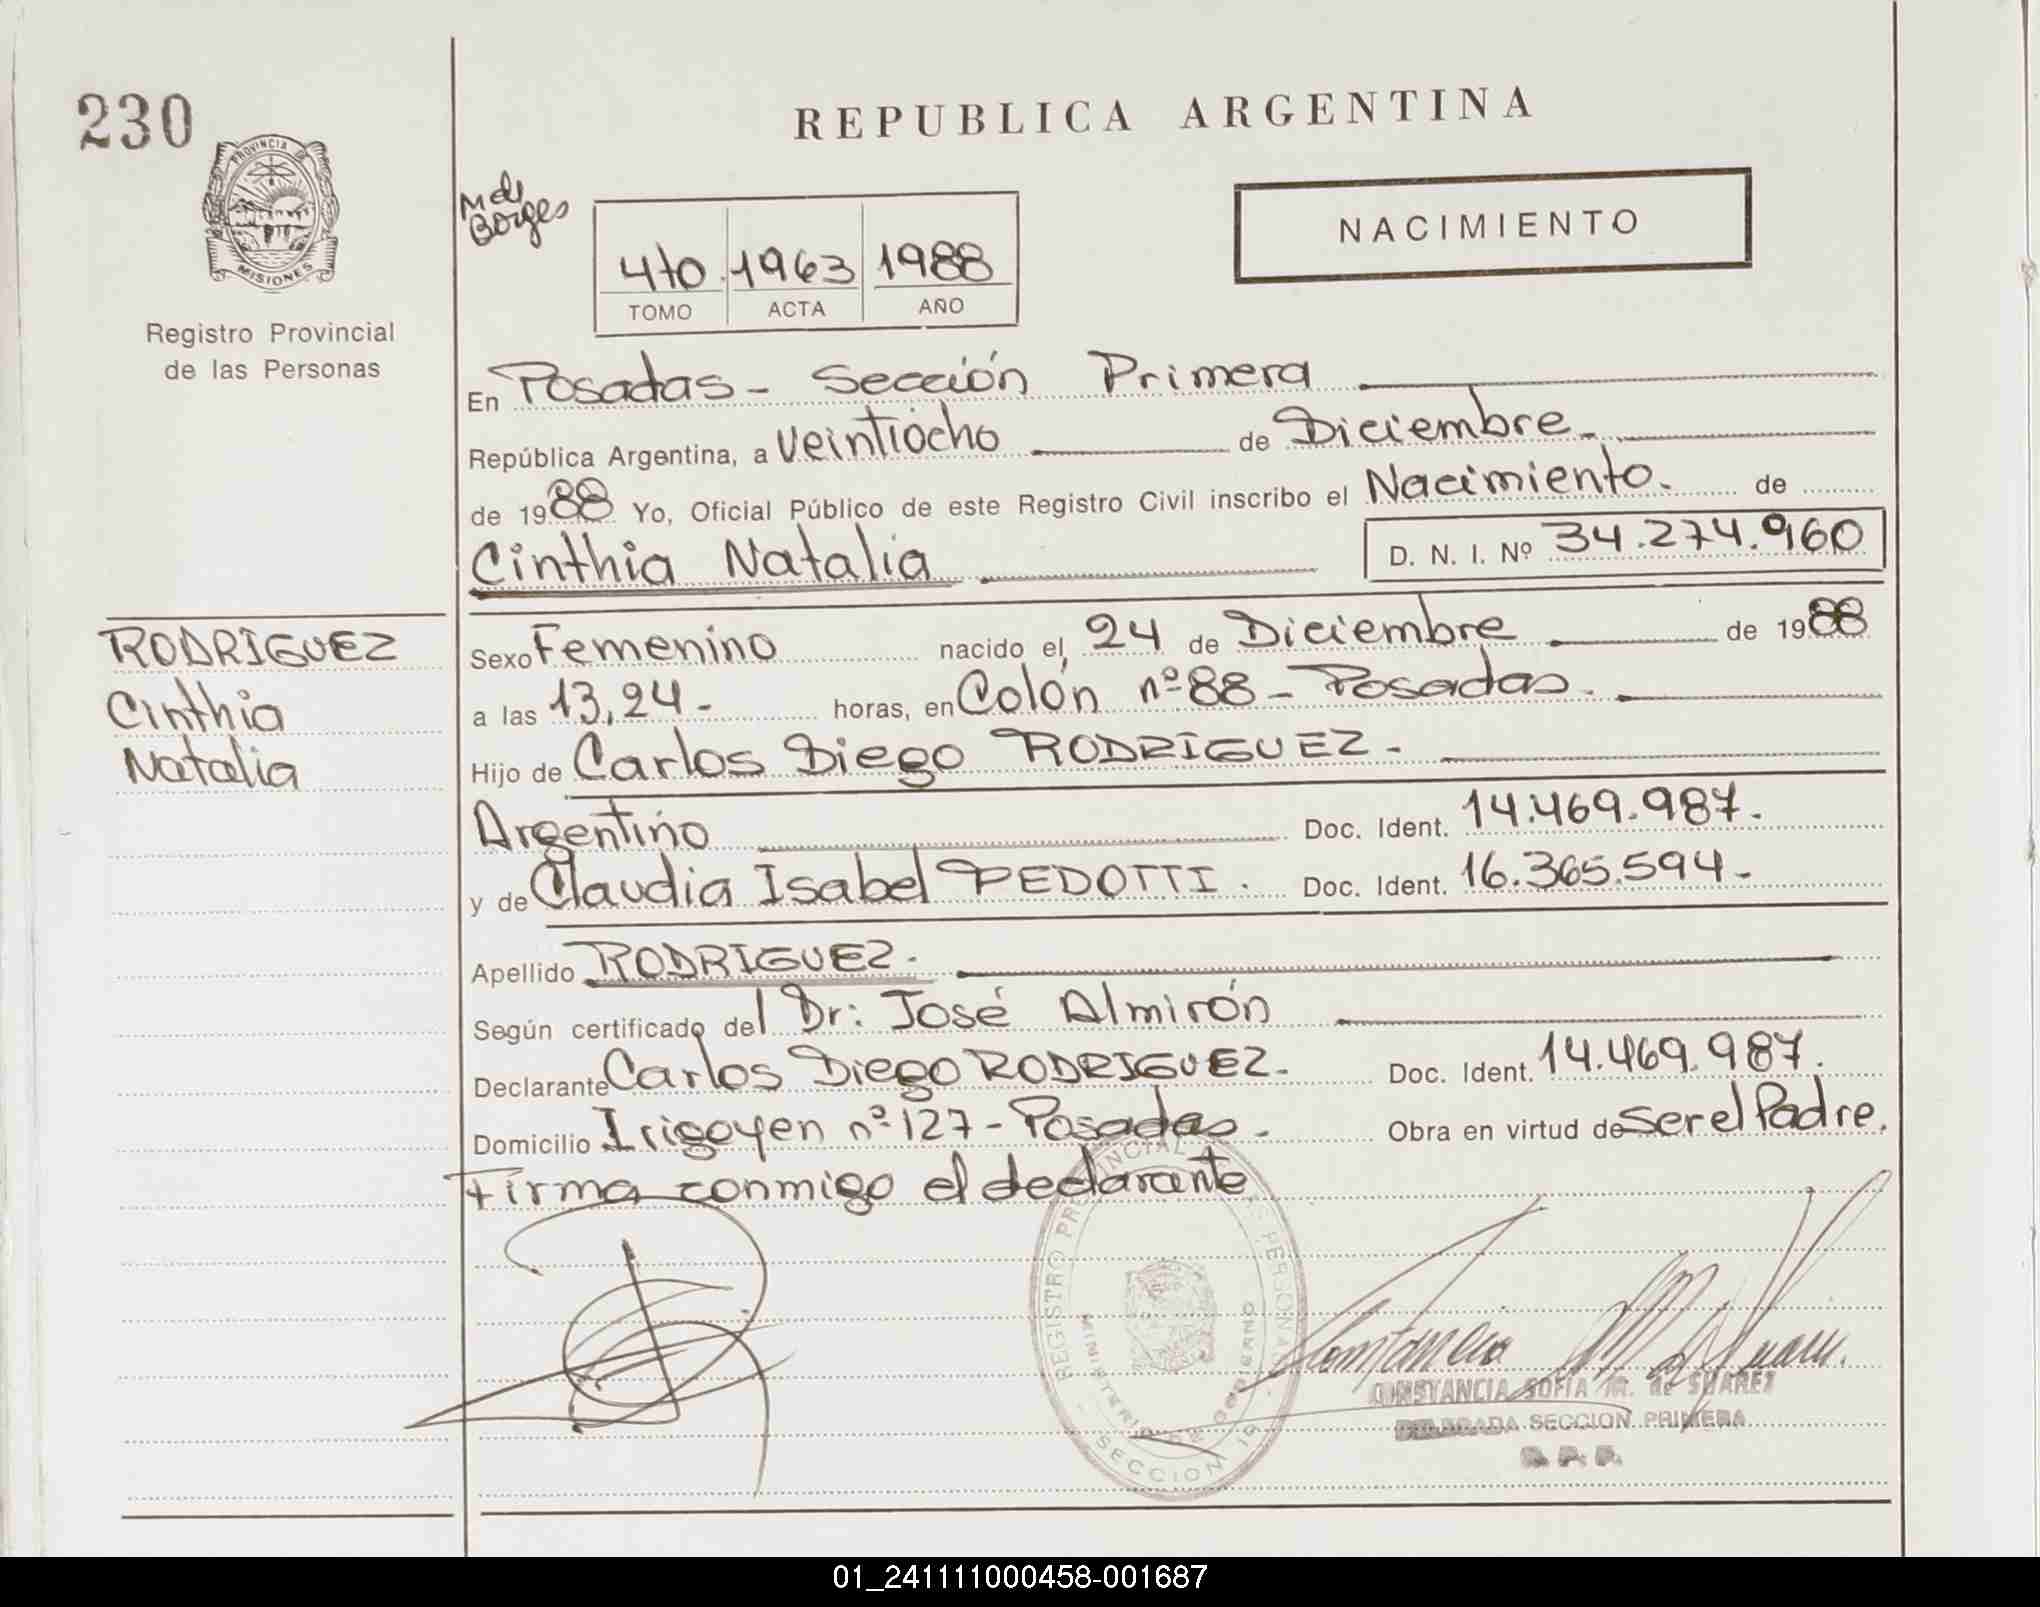 230
PROVINCIA DE
MISIONES
Registro Provincial
de las Personas
REPUBLICA ARGENTINA
Borges
4to. 1963 1988
TOMO ACTA AÑO
NACIMIENTO
En Posadas - Sección Primera
República Argentina, a Veintiocho de Diciembre
de 1988 Yo, Oficial Público de este Registro Civil inscribo el Nacimiento. de
Cinthia Natalia D. N. I. Nº 34.274.960
RODRIGUEZ
Cinthia
Natalia
Sexo Femenino nacido el, 24 de Diciembre de 1988
a las 13,24 - horas, en Colón nº 88 - Posadas.
Hijo de Carlos Diego RODRIGUEZ.
Argentino Doc. Ident. 14.469.987.
y de Claudia Isabel PEDOTTI. Doc. Ident. 16.365.594-
Apellido RODRIGUEZ.
Según certificado del Dr: José Almirón
Declarante Carlos Diego RODRIGUEZ. Doc. Ident. 14.469.987.
Domicilio Irigoyen nº 127 - Posadas. Obra en virtud de ser el Padre.
Firma conmigo el declarante
REGISTRO PROVINCIAL DE LAS PERSONAS
MINISTERIO DE GOBIERNO
SECCION 1ª
CONSTANCIA SOFIA M. de SUAREZ
DELEGADA SECCION PRIMERA
R. P. P.
01_241111000458-001687